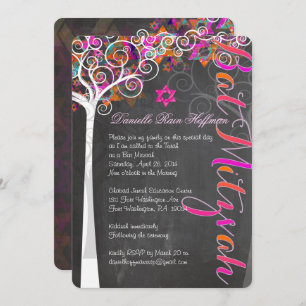 Danielle Rain Hoffman
Please join my family on this special day
as I am called to the Torah
as a Bat Mitzvah
Saturday, April 26, 2014
Nine o'clock in the Morning
Chabad Jewish Education Center
Fort Washington Ave.
Fort Washington, P.A. 19034
Kiddush immediately
Following the ceremony
Kindly RSVP by March 20 to
Bat Mitzvah